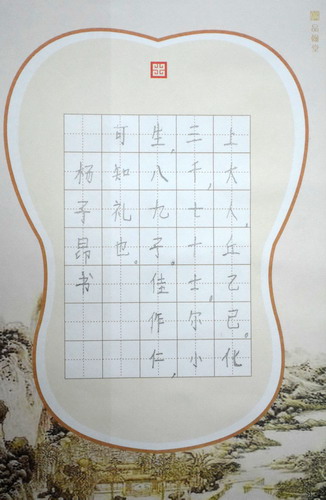 上大人丘乙己,化
三千,七十士,尔小
生,八九子,佳作仁,
可知礼也。
杨子昂书